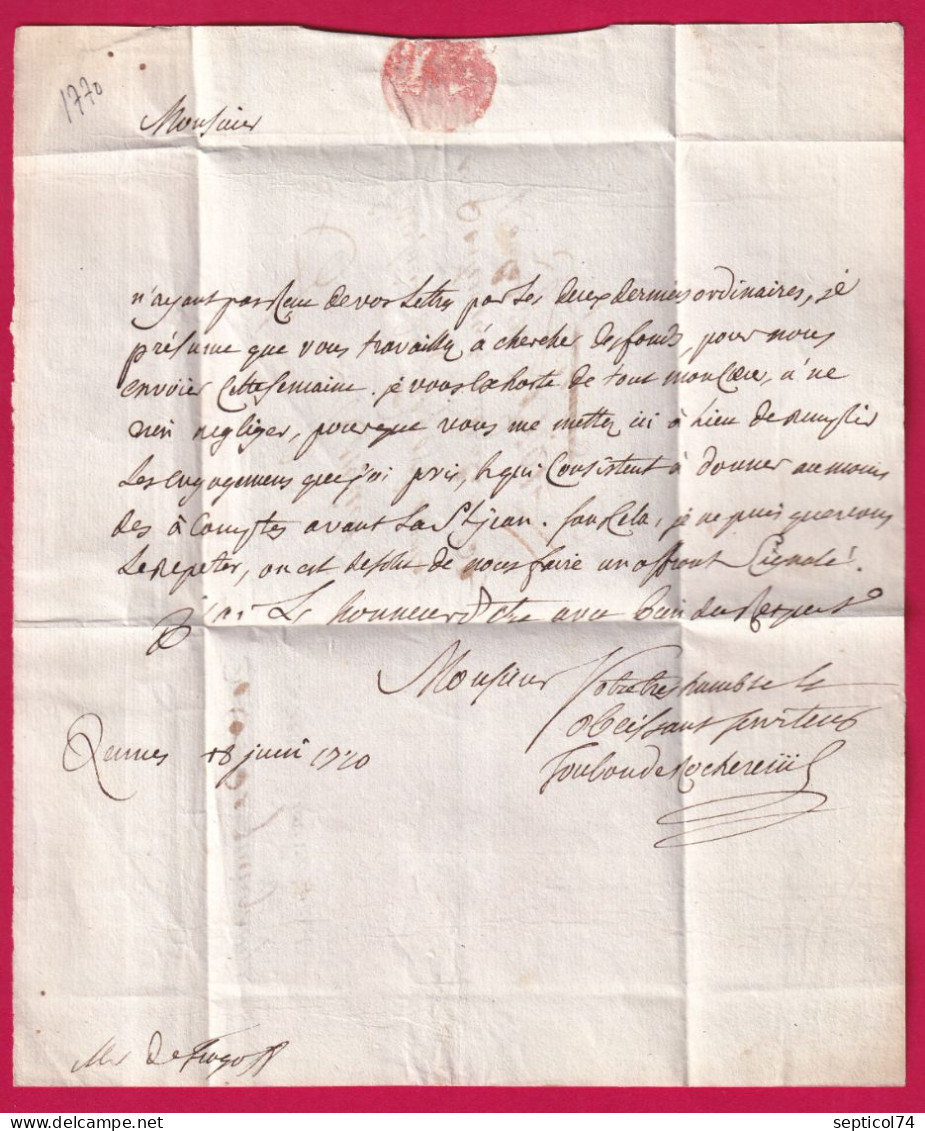 1770
Monsieur
n'ayant pas Reçu de vos Lettres par Les deux derniers ordinaires, je
présume que vous travaillez à chercher des fonds, pour nous
envoier Cette Semaine. je vous Exhorte de tout mon Cœur, à ne
rien negliger, pour que vous me mettez ici à Lieu de Remplir
Les engagemens que j'ai pris, & qui Consistent à donner au moins
des à Comptes avant La St jean. sans Cela, je ne puis que vous
Le Repeter, on est de nous faire un affront Signalé.
j'ai L'honneur d'etre avec bien du Respect
Monsieur Votre tres humble &
obeissant serviteur
Rennes 18 juin 1770
Mr de
septicol74